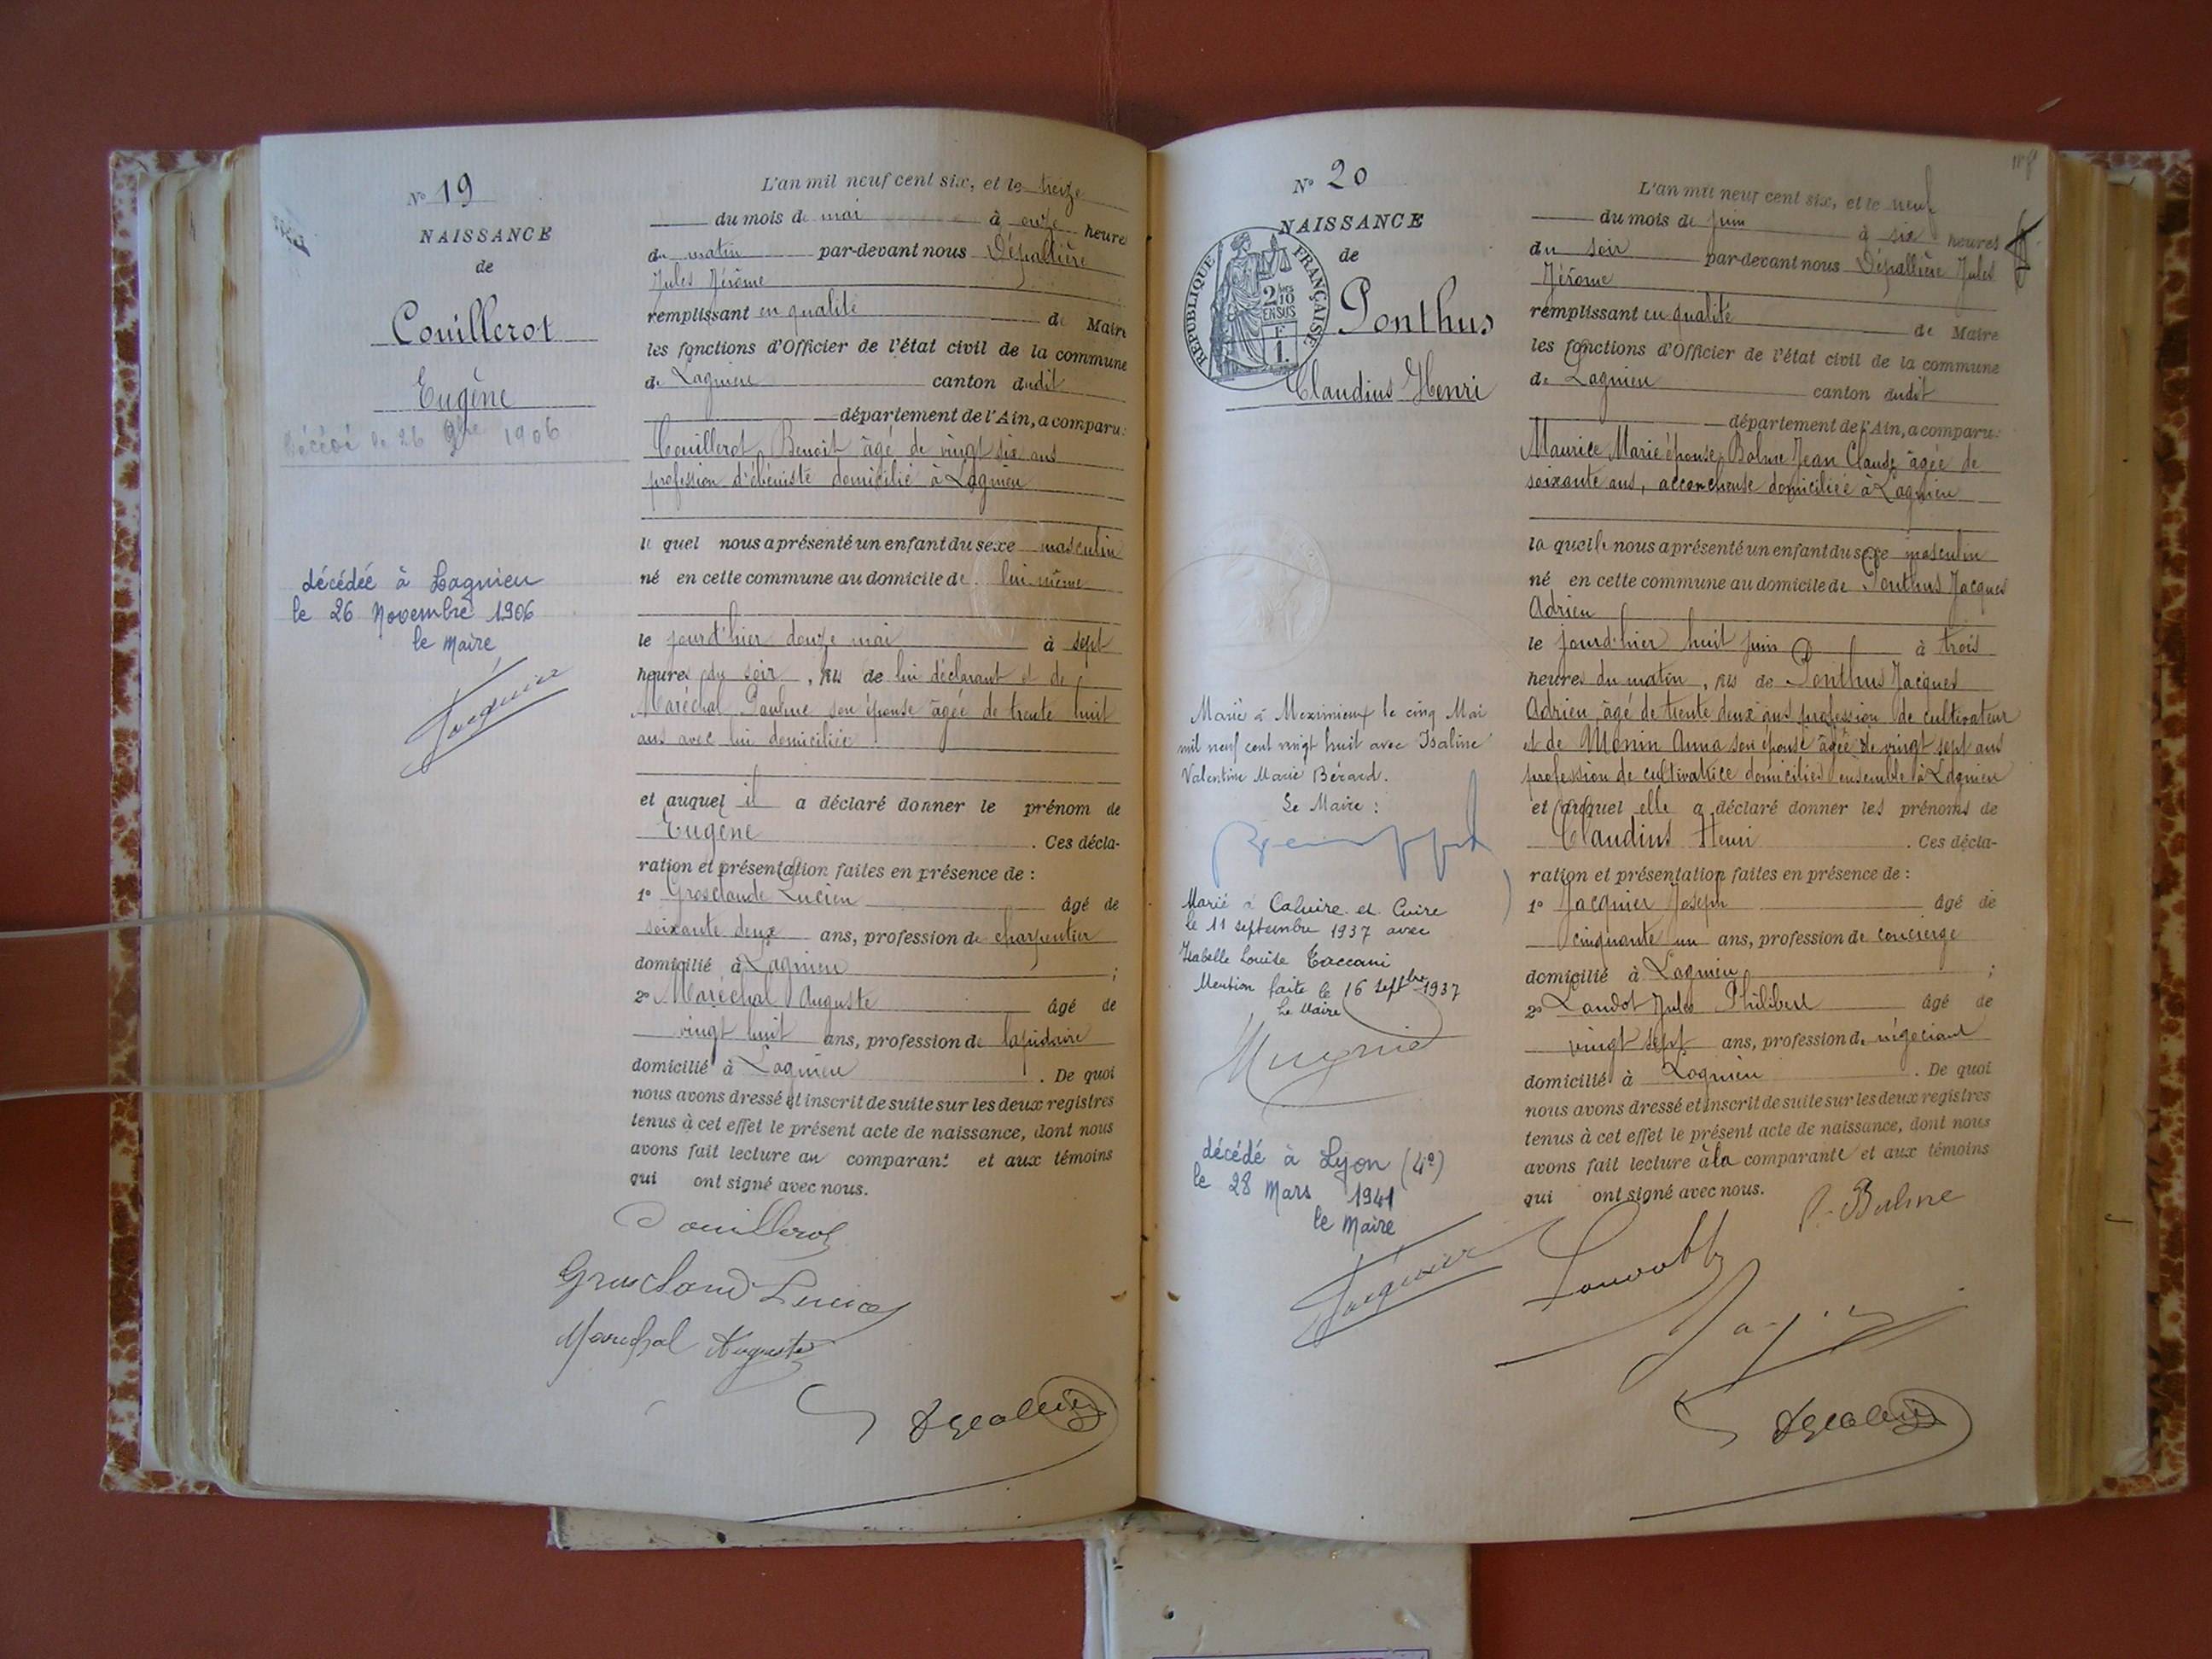 N° 19
NAISSANCE
de
Couillerot
Eugène
décédé le 26 9bre 1906
décédée à Lagnieu
le 26 Novembre 1906
le Maire
Jacquier
L'an mil neuf cent six, et le treize
du mois de mai à onze heures
du matin par-devant nous Dépallière
Jules Jérôme
remplissant en qualité de Maire
les fonctions d'Officier de l'état civil de la commune
de Lagnieu canton dudit
département de l'Ain, a comparu:
Couillerot Benoit âgé de vingt six ans
profession d'ébéniste domicilié à Lagnieu
le quel nous a présenté un enfant du sexe masculin
né en cette commune au domicile de lui même
le jourd'hier douze mai à sept
heures du soir, fils de lui déclarant et de
Maréchal Pauline son épouse âgée de trente huit
ans avec lui domiciliée
et auquel il a déclaré donner le prénom de
Eugène. Ces décla-
ration et présentation faites en présence de :
1° Grosclaude Lucien âgé de
soixante deux ans, profession de charpentier
domicilié à Lagnieu ;
2° Maréchal Auguste âgé de
vingt huit ans, profession de lapidaire
domicilié à Lagnieu. De quoi
nous avons dressé et inscrit de suite sur les deux registres
tenus à cet effet le présent acte de naissance, dont nous
avons fait lecture au comparant et aux témoins
qui ont signé avec nous.
Couillerot
Grosclaude Lucien
Marechal Auguste
N° 20
NAISSANCE
de
RÉPUBLIQUE FRANÇAISE
2/10
EN SUS
F
1.
Ponthus
Claudius Henri
Marié à Meximieux le cinq Mai
mil neuf cent vingt huit avec Isaline
Valentine Marie Bérard.
Le Maire :
Marié à Caluire et Cuire
le 11 septembre 1937 avec
Isabelle Louise Taccani
Mention faite le 16 septbre 1937
Le Maire
décédé à Lyon (4e)
le 28 Mars 1941
le Maire
Jacquier
L'an mil neuf cent six, et le neuf
du mois de juin à six heures
du soir par-devant nous Dépallière Jules
Jérôme
remplissant en qualité de Maire
les fonctions d'Officier de l'état civil de la commune
de Lagnieu canton dudit
département de l'Ain, a comparu:
Maurice Marie épouse Balme Jean Claude âgée de
soixante ans, accoucheuse domiciliée à Lagnieu
la quelle nous a présenté un enfant du sexe masculin
né en cette commune au domicile de Ponthus Jacques
Adrien
le jourd'hier huit juin à trois
heures du matin, fils de Ponthus Jacques
Adrien, âgé de trente deux ans profession de cultivateur
et de Monin Anna son épouse âgée de vingt sept ans
profession de cultivatrice domiciliés ensemble à Lagnieu
et auquel elle a déclaré donner les prénoms de
Claudius Henri. Ces décla-
ration et présentation faites en présence de :
1° Jacquier Joseph âgé de
cinquante un ans, profession de concierge
domicilié à Lagnieu ;
2° Landot Jules Philibert âgé de
vingt sept ans, profession de négociant
domicilié à Lagnieu. De quoi
nous avons dressé et inscrit de suite sur les deux registres
tenus à cet effet le présent acte de naissance, dont nous
avons fait lecture à la comparante et aux témoins
qui ont signé avec nous.
Balme